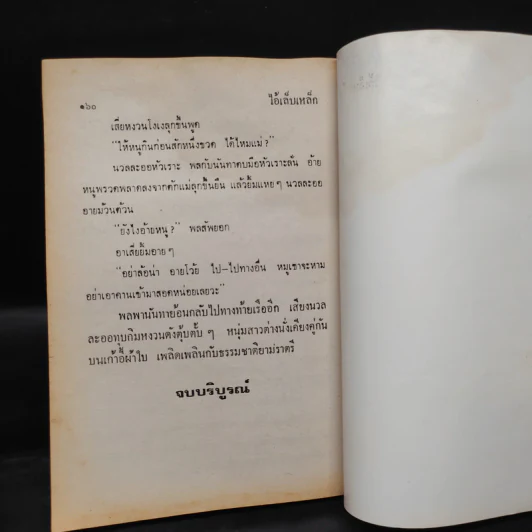 ๑๖๐ ไอ้เล็บเหล็ก
เสี่ยหงวนโงเงลุกขึ้นพูด
"ให้หนูกินก่อนสักหนึ่งขวด ได้ไหมแม่?"
นวลละออหัวเราะ พลกับนันทาตบมือหัวเราะลั่น อ้าย
หนูพรวดพลาดลงจากตักแม่ลุกขึ้นยืน แล้วยิ้มแหย ๆ นวลละออ
อายม้วนต้วน
"ยังไงอ้ายหนู?" พลสัพยอก
อาเสี่ยยิ้มอาย ๆ
"อย่าล้อน่า อายโว้ย ไป-ไปทางอื่น หมูเขาจะหาม
อย่าเอาคานเข้ามาสอดหน่อยเลยวะ"
พลพานันทาย้อนกลับไปทางท้ายเรืออีก เสียงนวล
ละออทุบกิมหงวนดังตุ้บตั้บ ๆ หนุ่มสาวต่างนั่งเคียงคู่กัน
บนเก้าอี้ผ้าใบ เพลิดเพลินกับธรรมชาติยามราตรี
จบบริบูรณ์